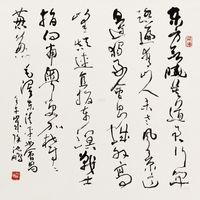 东方欲晓莫道君行早
踏遍青山人未老风景这
边独好会昌城外高
峰颠连直接东溟战士
指看南粤更加郁郁
葱葱 毛泽东清平乐会昌